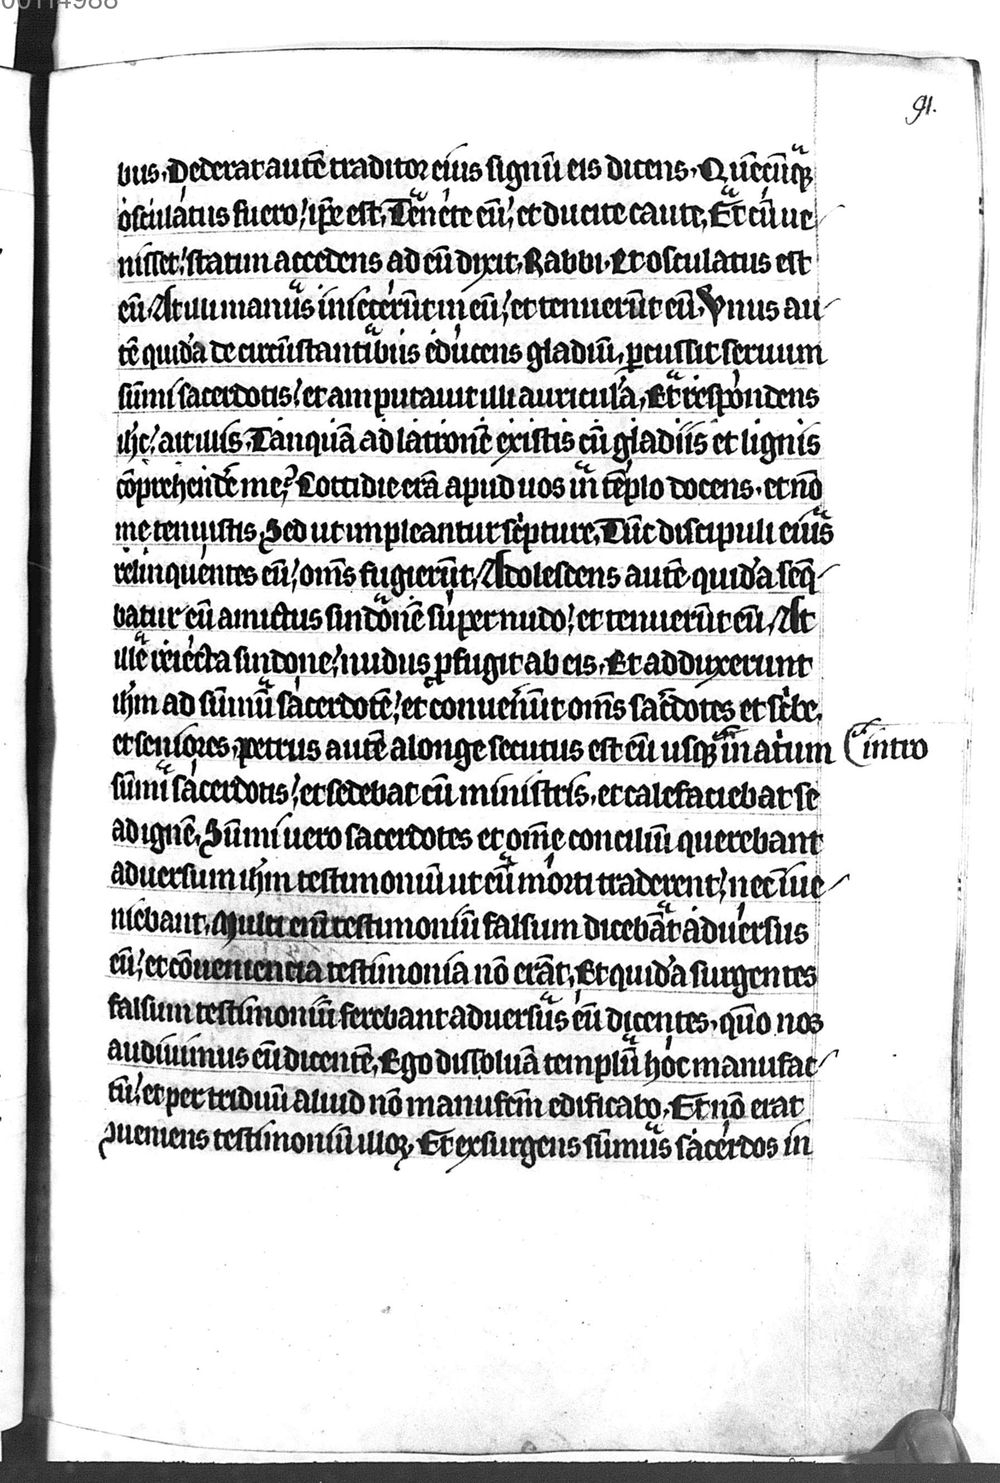 00114988
91.
bus. Dederat autē traditor eius signū eis dicens. Quēcūqꝫ
osculatus fuero, ip̄e est, Tenete eū, et ducite caute, Et cū ue
nisset, statim accedens ad eū dixit, Rabbi. Et osculatus est
eū. At illi manus iniecerūt in eū, et tenuerūt eū. Vnus au
tē quidā de circūstantibus educens gladiū, ꝑcussit seruum
sūmi sacerdotis, et amputauit illi auriculā, Et respondens
ihc̄, ait illis, Tanquā ad latronē existis cū gladiis et lignis
cōprehendē me? Cottidie erā apud uos in tēplo docens. et nō
me tenuistis, Sed ut impleantur sc̄pture, Tūc discipuli eius
relinquentes eū, om̄s fugierūt, Adolescens autē quidā seq̄
batur eū amictus sindonē super nudo, et tenuerūt eū, At
ille reiecta sindone, nudus ꝓfugit ab eis. Et adduxerunt
ihm̄ ad sūmū sacerdotē, et conuenerūt om̄s sac̄dotes et sc̄be,
et seniores, petrus autē a longe secutus est eū usqꝫ in atrium
intro
sūmi sacerdotis, et sedebat cū ministris. et calefaciebat se
ad ignē, Sūmi uero sacerdotes et om̄e conciliū querebant
aduersum ihm̄ testimoniū ut eū morti traderent, nec īue
niebant, Multi enī testimoniū falsum dicebāt aduersus
eū, et cōuenientia testimonia nō erāt, Et quidā surgentes
falsum testimoniū ferebant aduersus eū dicentes, qm̄o nos
audiuimus eū dicentē, Ego dissoluā templū hoc manufac
tū, et per triduū aliud nō manufcm̄ edificabo, Et nō erat
ꝯueniens testimoniū illoꝝ, Et exsurgens sūmus sacerdos in